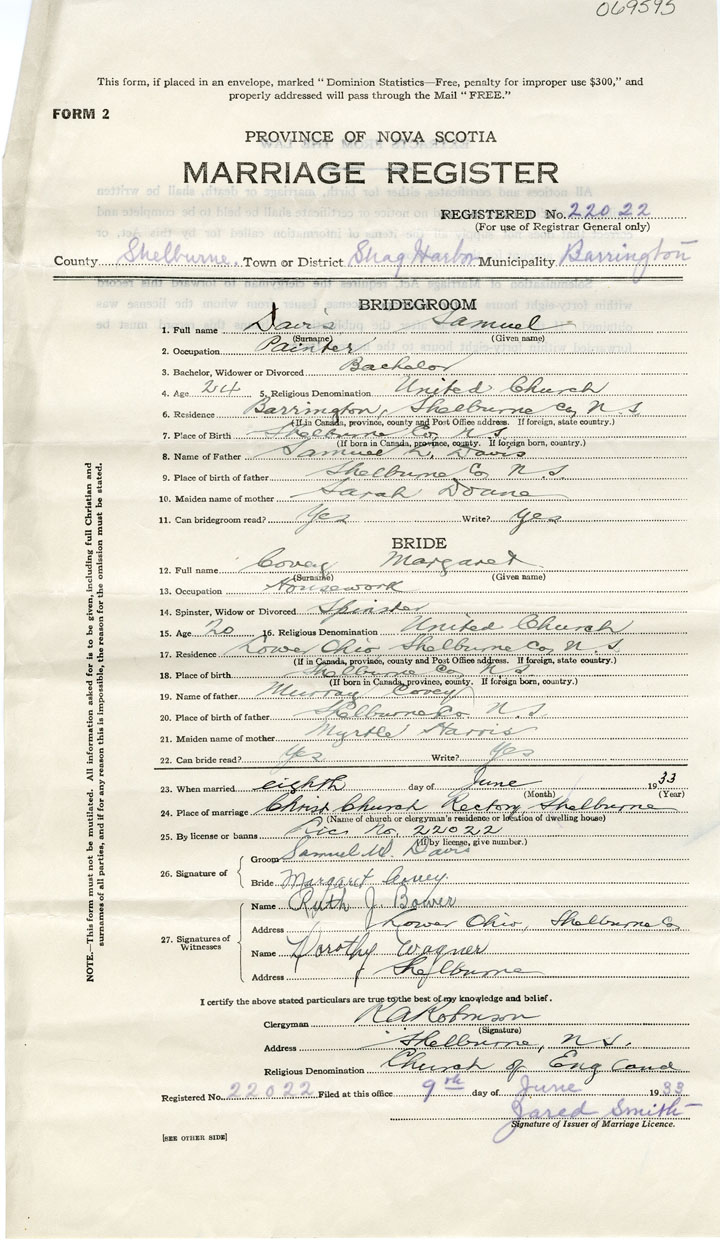 069595
This form, if placed in an envelope, marked " Dominion Statistics—Free, penalty for improper use $300," and
properly addressed will pass through the Mail " FREE."
FORM 2
PROVINCE OF NOVA SCOTIA
MARRIAGE REGISTER
REGISTERED No. 22022
(For use of Registrar General only)
County Shelburne. Town or District Shag Harbor Municipality Barrington
BRIDEGROOM
1. Full name Davis Samuel
(Surname) (Given name)
2. Occupation Painter
3. Bachelor, Widower or Divorced Bachelor
4. Age 24 5. Religious Denomination United Church
6. Residence Barrington, Shelburne Co, N S
(If in Canada, province, county and Post Office address. If foreign, state country.)
7. Place of Birth Shelburne Co, N. S.
(If born in Canada, province, county. If foreign born, country.)
8. Name of Father Samuel L. Davis
9. Place of birth of father Shelburne Co N. S.
10. Maiden name of mother Sarah Doane
11. Can bridegroom read? Yes Write? yes
BRIDE
12. Full name Covey Margaret
(Surname) (Given name)
13. Occupation Housework
14. Spinster, Widow or Divorced Spinster
15. Age 20 16. Religious Denomination United Church
17. Residence Lower Ohio Shelburne Co, N. S.
(If in Canada, province, county and Post Office address. If foreign, state country.)
18. Place of birth Shelburne Co, N S
(If born in Canada, province, county. If foreign born, country.)
19. Name of father Murray Covey
20. Place of birth of father Shelburne Co N S
21. Maiden name of mother Myrtle Harris
22. Can bride read? Yes Write? Yes
23. When married eighth day of June 1933
(Month) (Year)
24. Place of marriage Christ Church Rectory Shelburne
(Name of church or clergyman's residence or location of dwelling house)
25. By license or banns Lics No. 22022
(If by license, give number.)
26. Signature of
Groom Samuel W. Davis
Bride Margaret Covey.
27. Signatures of Witnesses
Name Ruth J. Bower
Address Lower Ohio, Shelburne Co
Name Dorothy Wagner
Address Shelburne
I certify the above stated particulars are true to the best of my knowledge and belief.
Clergyman R A Robinson
(Signature)
Address Shelburne, N. S.
Religious Denomination Church of England
Registered No. 22022 Filed at this office 9th day of June 1933
Jared Smith
Signature of Issuer of Marriage Licence.
[SEE OTHER SIDE]
NOTE.—This form must not be mutilated. All information asked for is to be given, including full Christian and
surnames of all parties, and if for any reason this is impossible, the reason for the omission must be stated.